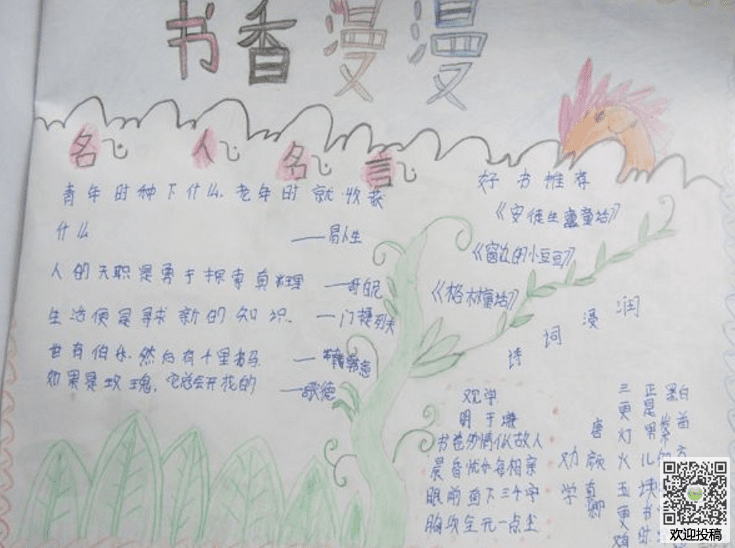 书香漫漫
名人名言
青年时种下什么,老年时就收获
什么
——易卜生
人的天职是勇于探索真理
——哥白尼
生活便是寻求新的知识.
——门捷列夫
世有伯乐,然后有千里马
——韩愈
如果是玫瑰,它总会开花的
——歌德
好书推荐
《安徒生童话》
《窗边的小豆豆》
《格林童话》
诗词漫润
观学
明 于谦
书卷多情似故人
晨昏忧乐每相亲
眼前直下三千字
胸次全无一点尘
劝学
唐 颜真卿
三更灯火五更鸡
正是男儿
黑白
欢迎投稿